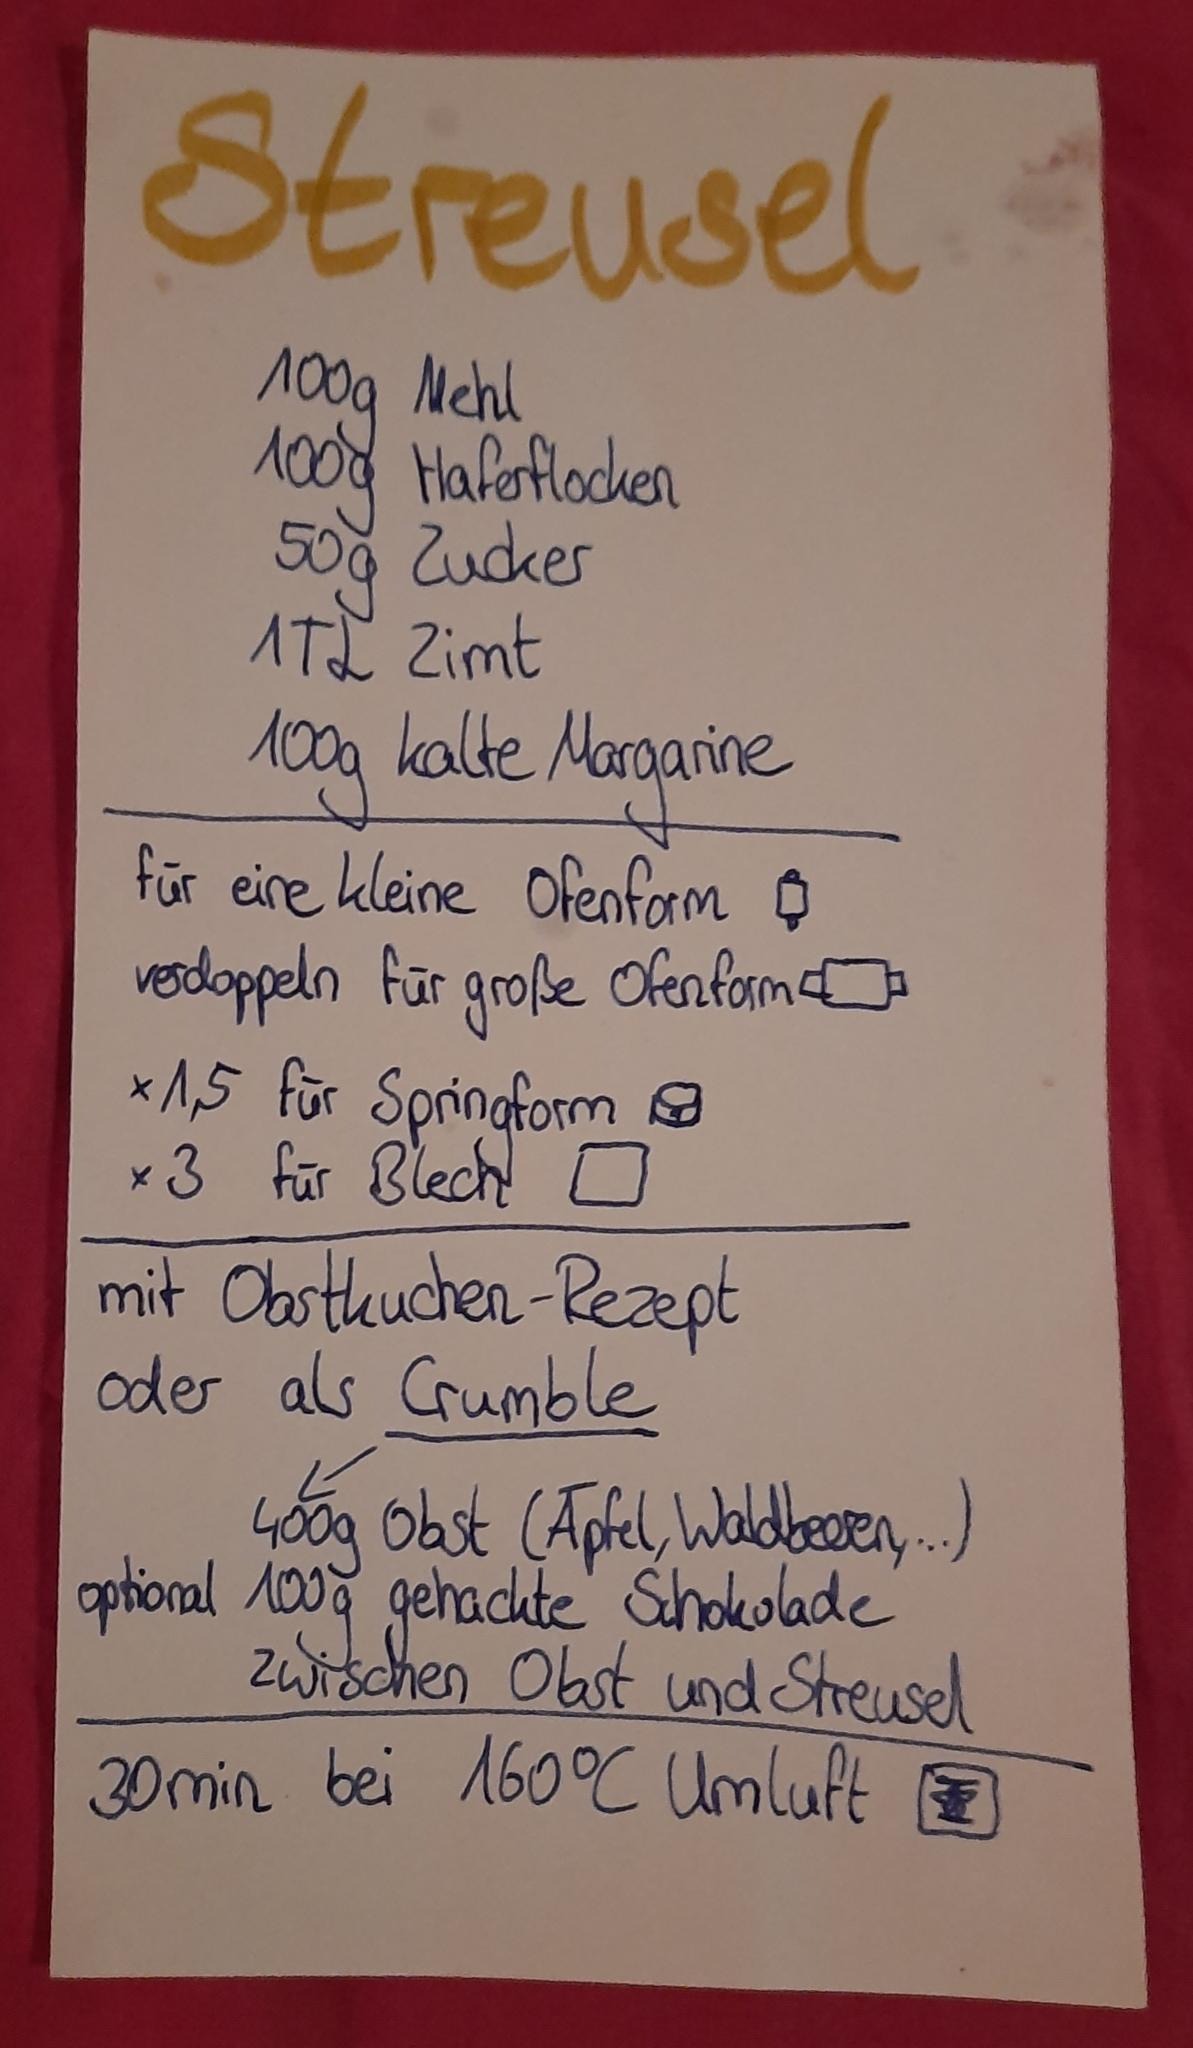 Streusel
100g Mehl
100g Haferflocken
50g Zucker
1TL Zimt
100g kalte Margarine
für eine kleine Ofenform
verdoppeln für große Ofenform
×1,5 für Springform
×3 für Blech
mit Obstkuchen-Rezept
oder als Crumble
400g Obst (Äpfel, Waldbeeren, ...)
optional 100g gehackte Schokolade
zwischen Obst und Streusel
30min bei 160°C Umluft